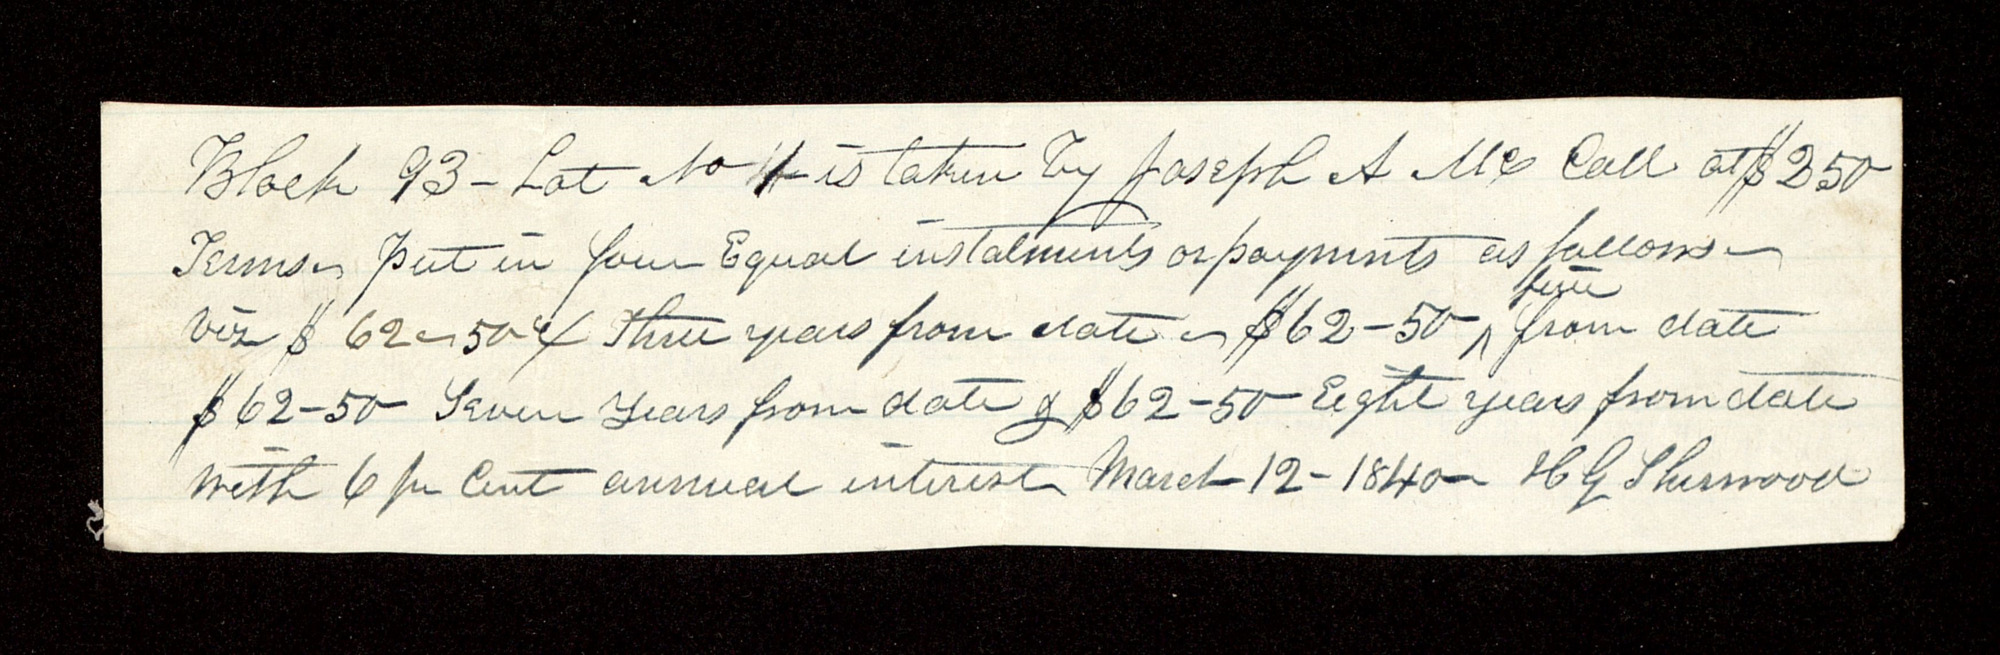 Block 93 - Lot No 4 - is taken by Joseph A McCall at $250
Terms - Put in four Equal instalments or payments as follows -
five
viz $62-50 cts Three years from date - $62-50 ^ from date
$62-50 Seven years from date & $62-50 Eight years from date
with 6 pr Cent annual interest March 12 - 1840 - H G Sherwood